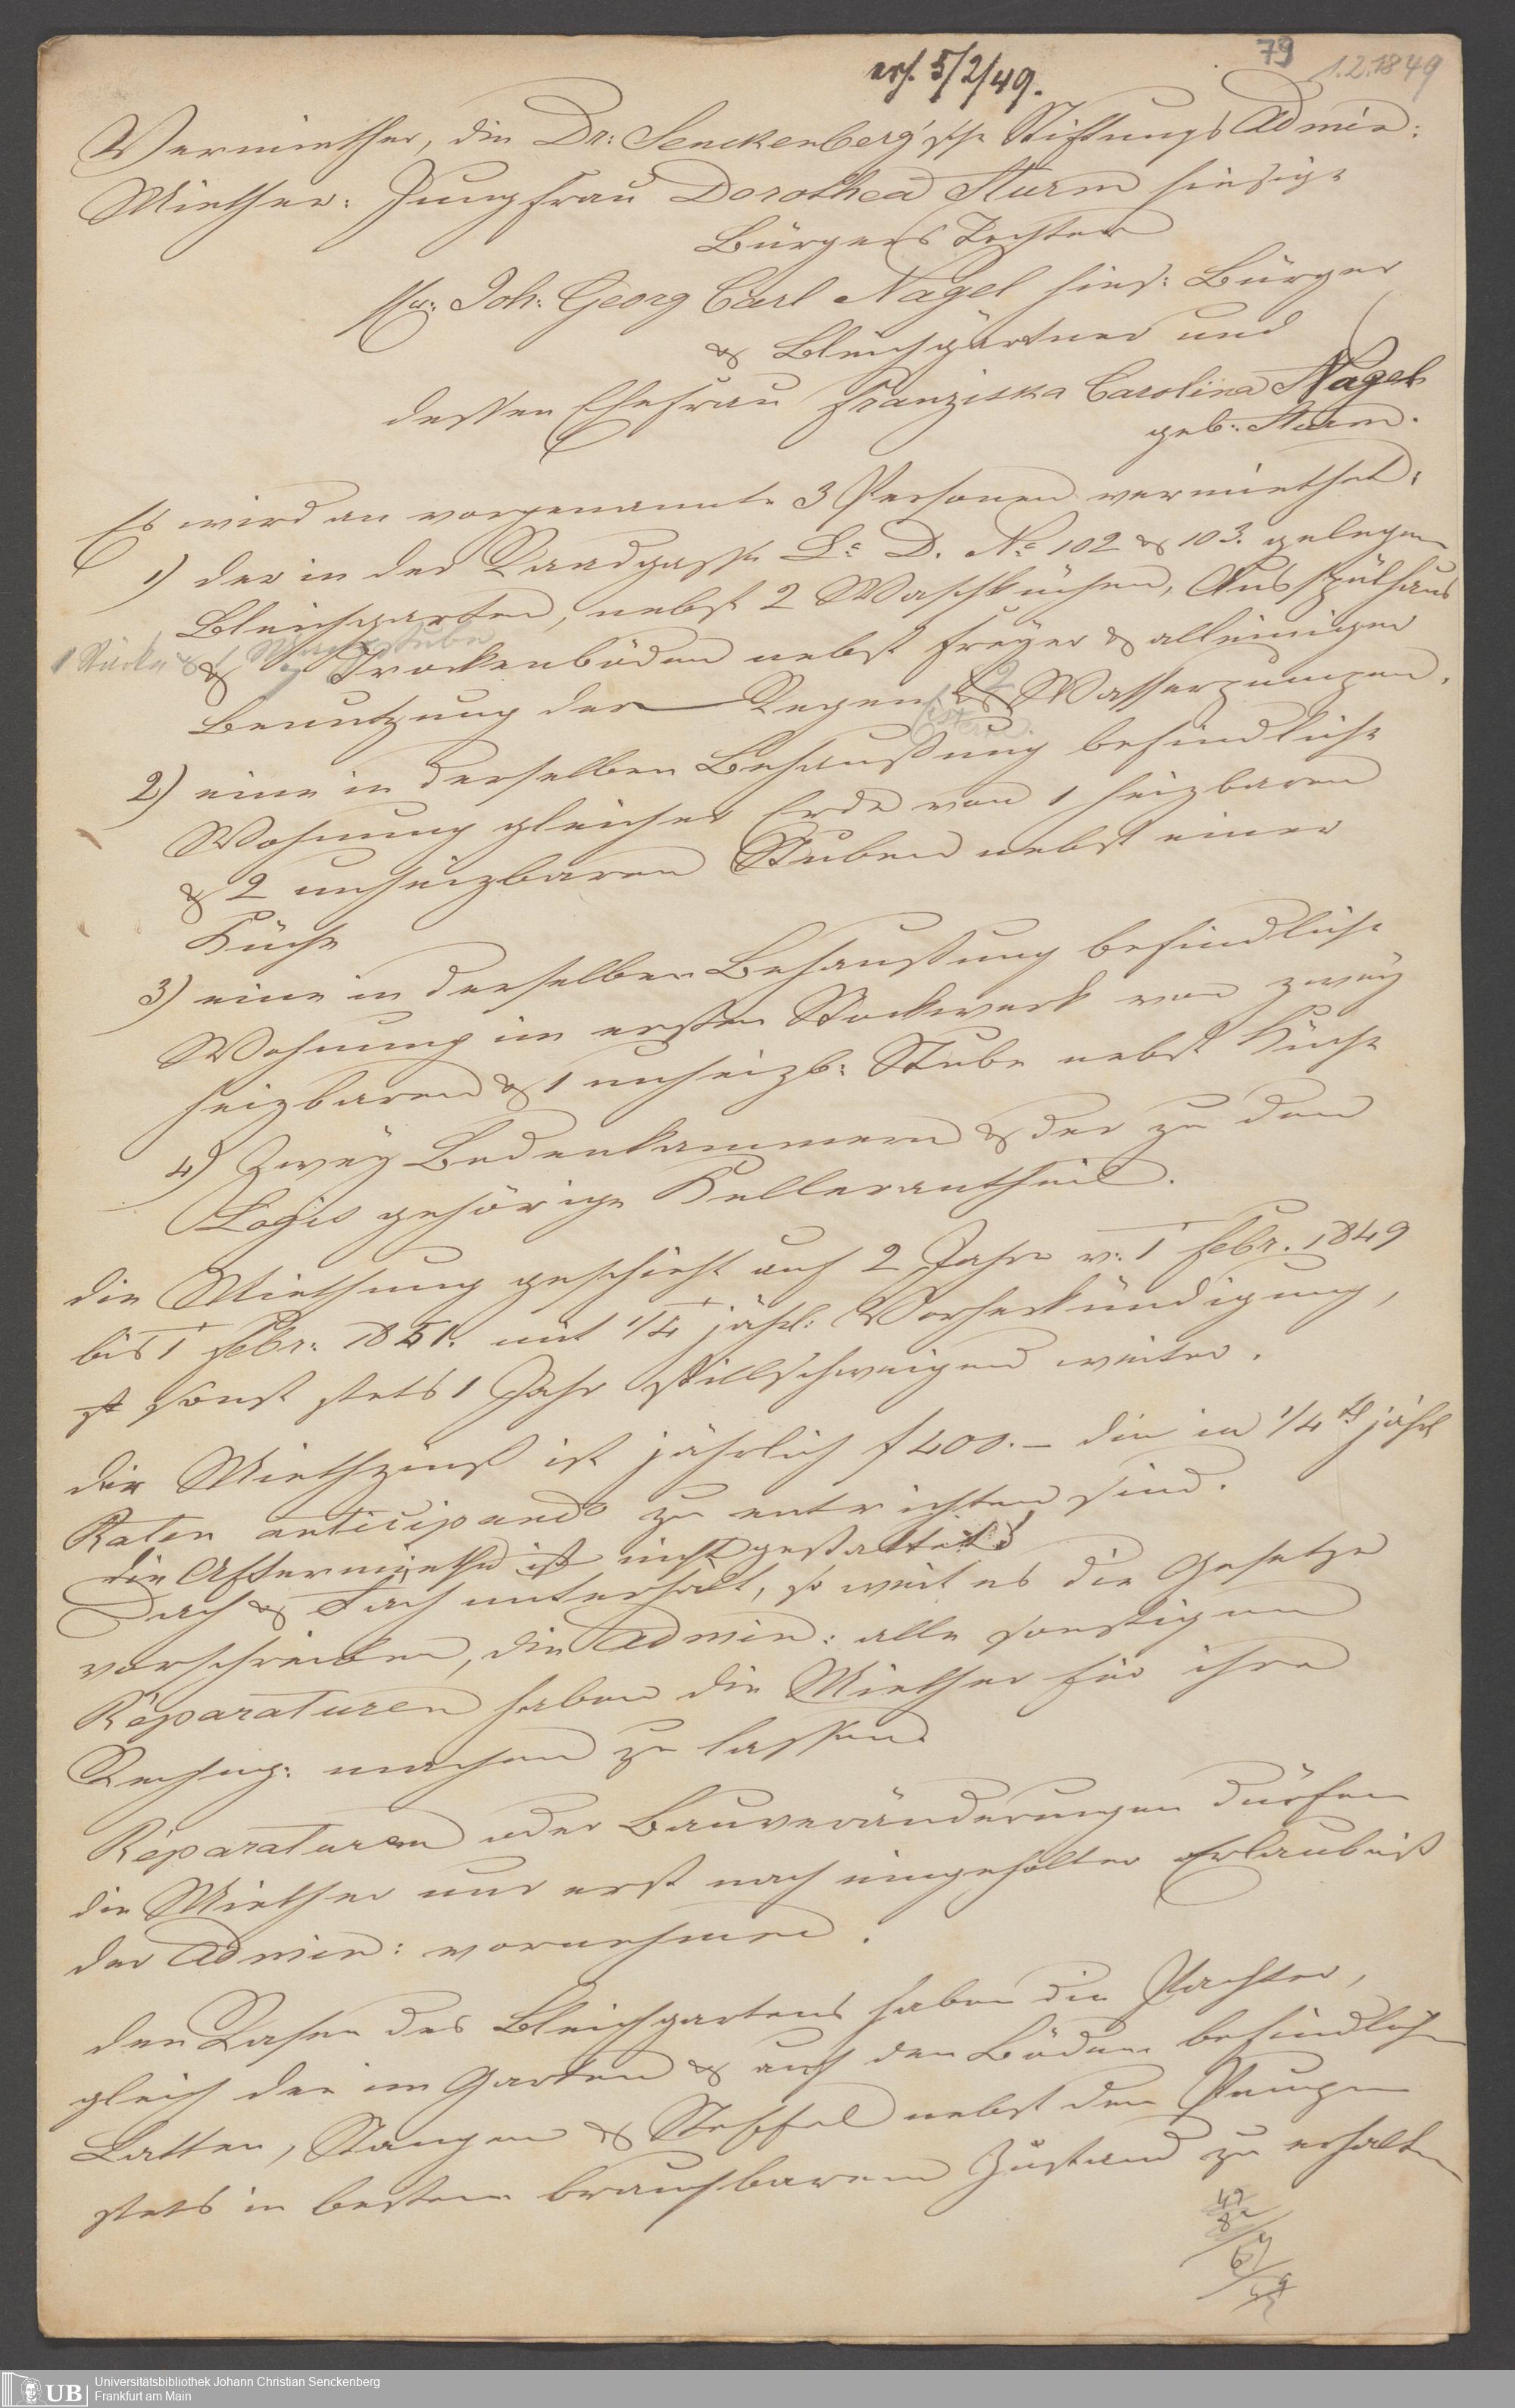 79 1.2.1849
erh. 5/2/49.
Vermiether, die Dr: Senckenberg'sche Stiftungs Admin:
Miether: Jungfrau Dorothea Sturm hiesige
Bürgers Tochter
Hr: Joh: Georg Carl Nagel hies: Bürger
& Bleichgärtner und
dessen Ehefrau Franziska Carolina Nagel
geb: Sturm.
Es wird an vorgenannte 3 Personen vermiethet:
1) der in der Radgasse La D. No 102 & 103. gelegene
Bleichgarten, nebst 2 Waschküchen, Ausspülhaus
1 Stärke & 1 Mangstube
& Trockenböden nebst freyer & alleiniger
Benutzung der Regen & Wasserpumpen.
2) eine in derselben Behaußung befindliche
Wohnung gleicher Erde von 1 heizbaren
& 2 unheizbaren Stuben nebst einer
Küche
3) eine in derselben Behaußung befindliche
Wohnung im ersten Stockwerk von zwey
heizbaren & 1 unheizb: Stube nebst Küche
4) Zwey Bodenkammern & der zu dem
Logis gehörige Kellerantheil.
die Miethung geschieht auf 2 Jahre v: 1 Febr. 1849
bis 1 Febr: 1851. mit 1/4 jährl: Vorherkündigung,
sonst stets 1 Jahr stillschweigend weiter.
der Miethzinß ist jährlich f 400.– die in 1/4tl jährl
Raten anticipando zu entrichten sind.
die Aftermiethe ist nicht gestattet!
Dach & Fach unterhält, so weit es die Gesetze
vorschreiben, die Admin: alle sonstigen
Reparaturen haben die Miether für ihre
Rechng: machen zu lassen.
Reparaturen oder Bauveränderungen dürfen
die Miether nur erst nach eingeholter Erlaubniß
der Admin: vornehmen.
den Rasen des Bleichgartens haben die Pachter,
gleich den im Garten & auf den Böden befindlichen
Latten, Stangen & Stoffel nebst den Pumpen
stets in bestem brauchbarem Zustand zu erhalten
Universitätsbibliothek Johann Christian Senckenberg
UB Frankfurt am Main